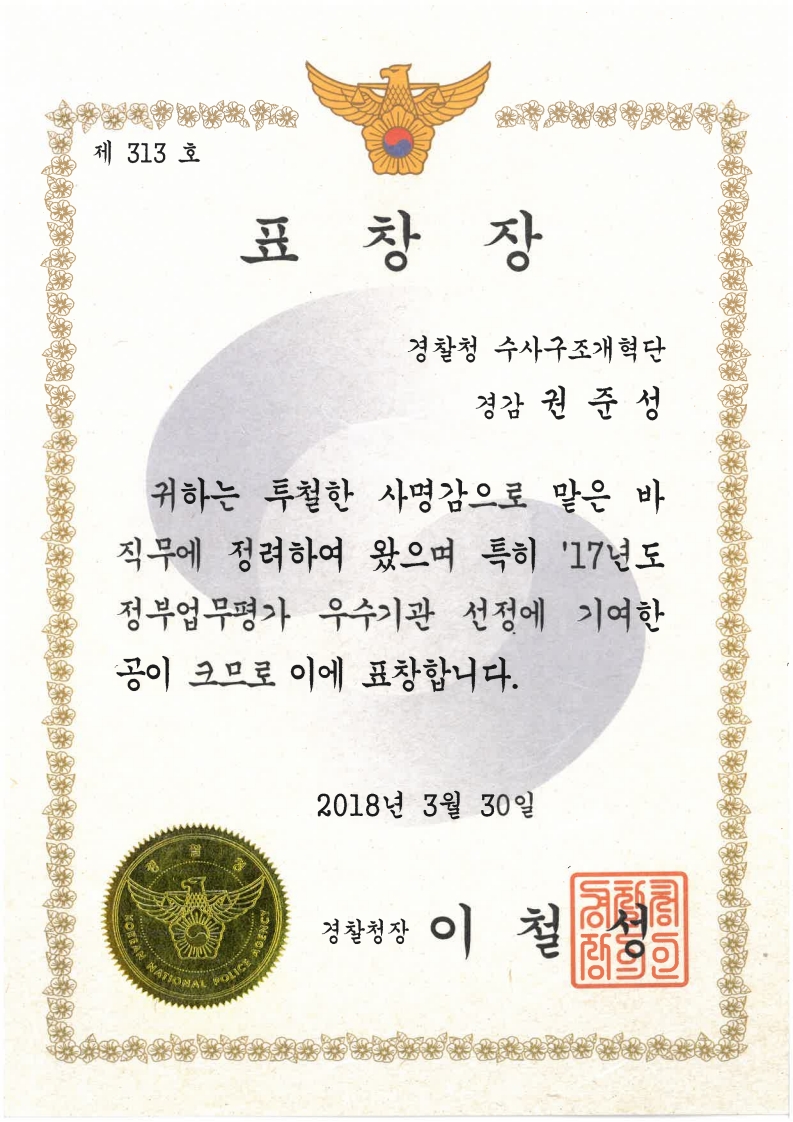 제 313 호
표 창 장
경찰청 수사구조개혁단
경감 권 준 성
귀하는 투철한 사명감으로 맡은 바
직무에 정려하여 왔으며 특히 '17년도
정부업무평가 우수기관 선정에 기여한
공이 크므로 이에 표창합니다.
2018년 3월 30일
경찰청
KOREAN NATIONAL POLICE AGENCY
경찰청장 이 철 성